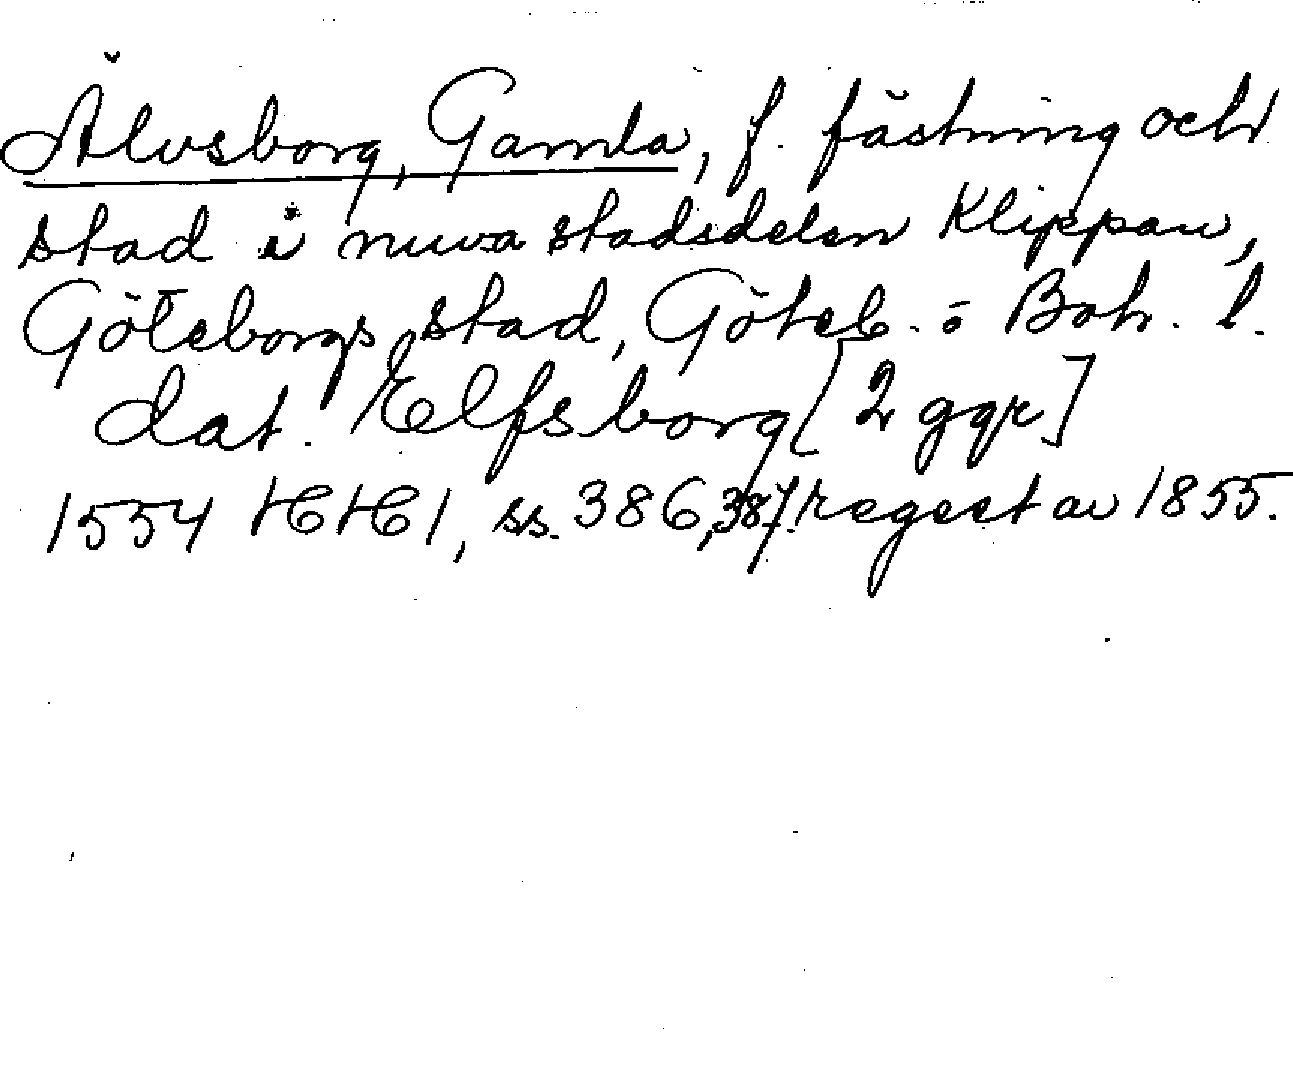 Älvsborg, Gamla, f. fästning och
stad i nuva stadsdelen Klippan,
Göteborgs stad, Göteb. o Boh. l.
dat. Elfsborg [2 ggr]
1554 HH1, ss. 386, 387. regest av 1855.